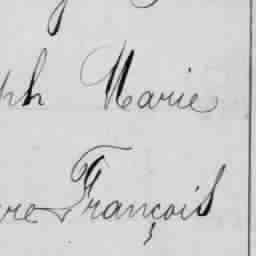 ph Marie
re François